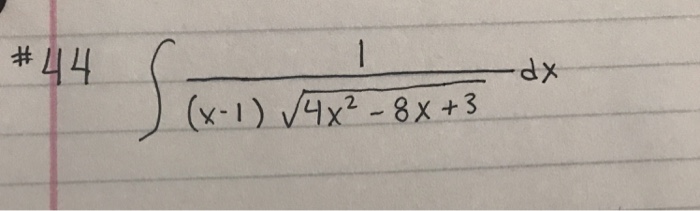 #44 ∫ 1/((x-1) √(4x² - 8x + 3)) dx